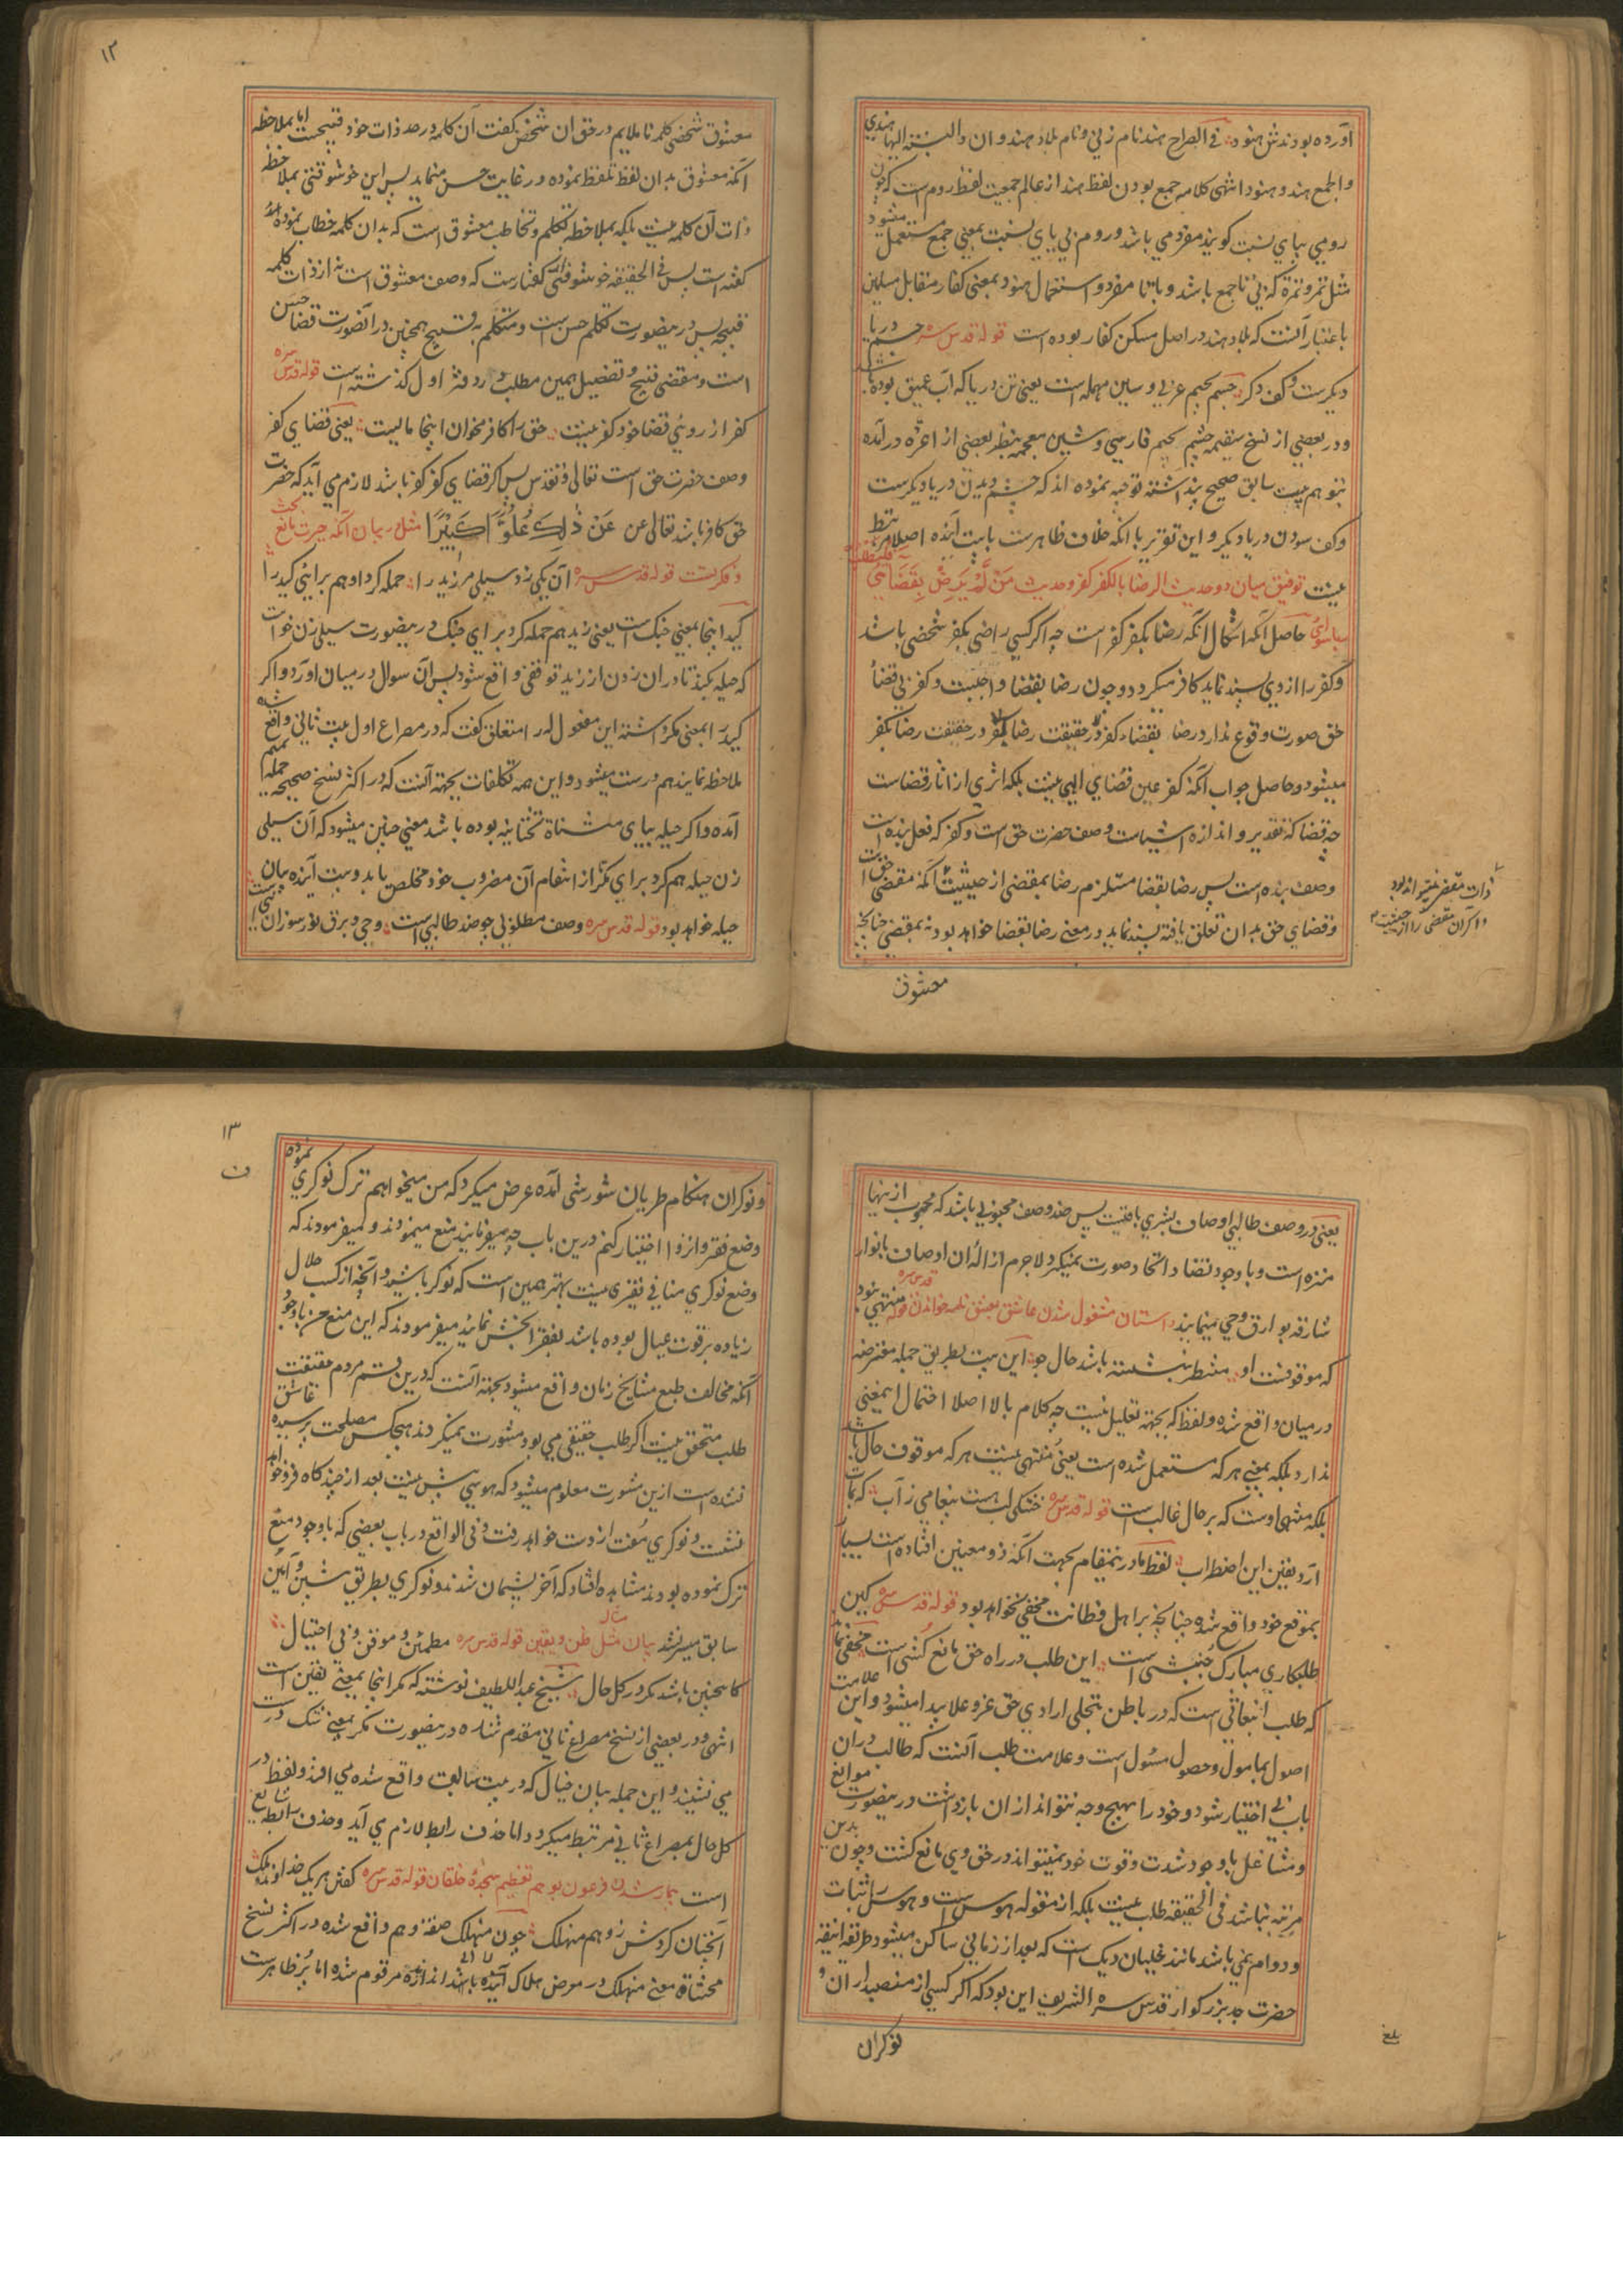 آورده بودندش هنود في الصراح هند نام زني و نام بلاد هندوان والنسبة اليها هندي
والجمع هند و هنود انتهى كلامه جمع بودن لفظ هند از عالم جمعيت لفظ روم است كه چون
رومي بياي نسبت كويند مفرد مي باشد و روم بي ياي نسبت بمعني جمع مستعمل ميشود
مثل تمر و تمرة كه بي تا جمع باشد و با تا مفرد و استعمال هنود بمعني كفار مقابل مسلمين
باعتبار آنست كه بلاد هند در اصل مسكن كفار بوده است قوله قدس سره جسم دريا
ديكرست و كف دكر جسم بجيم عربي و سين مهمله است يعني تن دريا كه آب عميق بوده باشد
و در بعضي از نسخ سقيمه چشم بجيم فارسي و شين معجمه بنظر بعضي از اعزه درآمده
بتوهم بيت سابق صحيح پنداشته توجيه نموده اند كه چشم ديدن دريا ديكرست
و كف سودن دريا ديكر و اين تقرير با انكه خلاف ظاهرست با بيت آينده اصلا مرتبط
نيست توفيق ميان دو حديث الرضا بالكفر كفر و حديث من لم يرض بقضائي فليطلب
ربا سوائي حاصل انكه اشكال انكه رضا بكفر كفر است چه اكر كسي راضي بكفر شخصي باشد
و كفر را از وي پسند نمايد كافر ميكردد و چون رضا بقضا واجبست و كفر بي قضاء
حق صورت وقوع ندارد رضا بقضاء كفر در حقيقت رضا بكفر در حقيقت رضا بكفر
ميشود و حاصل جواب آنكه كفر عين قضاي الهي نيست بلكه اثري از اثار قضاست
چه قضا كه تقدير و اندازه اشياست وصف حضرت حق است و كفر كه فعل بنده است
وصف بنده است پس رضا بقضا مستلزم رضا بمقضي از حيثيت آنكه مقضي حق است
و قضاي حق بدان تعلق يافته پسند نمايد در معني رضا بقضا خواهد بود نه بمقضي چنانچه
معشوق
۱۲
معشوق شخصي كلمه نا ملايم در حق ان شخص كفت آن كلمه در حد ذات خود قبيحست اما بملاحظه
آنكه معشوق بدان لفظ تلفظ نموده در غايت حسن مينمايد پس اين خوشوقتي بملاحظه
ذات آن كلمه نيست بلكه بملاحظه تكلم و تخاطب معشوق است كه بدان كلمه خطاب نموده
كفته است پس في الحقيقه خوشوقتي كفتارست كه وصف معشوق است نه از ذات كلمه
قبيحه پس درينصورت تكلم حسن ست و متكلم به قبيح همچنين درانصورت قضا حسن
است و مقضي قبيح و تفصيل همين مطلب در دفتر اول كذشته است قوله قدس سره
كفر از روي قضا خود كفر نيست حق را كافر مخوان اينجا مايست يعني قضاي كفر
وصف حضرت حق است تعالى و تقدس پس اكر قضاي كفر كفر باشد لازم مي آيد كه حضرت
حق كافر باشد تعالى عن ذلك علوا كبيرا مثل بيان آنكه حيرت مانع بحث
و فكرتست قوله قدس سره آن يكي زد سيلي مر زيد را حمله كرد او هم براي كيد را
كيد اينجا بمعني جنك است يعني زيد هم حمله كرد براي جنك درينصورت سيلي زن خواست
كه حيله كند تا دران زدن از زيد توقفي واقع شود پس آن سوال در ميان آورد و اكر
كيد را بمعني مكر داشته اين مفعول له را متعلق كفت كه در مصراع اول بيت ثاني واقع شده
ملاحظه نمايند هم درست ميشود و اين همه تكلفات بجهة آنست كه در اكثر نسخ صحيحه حمله
آمده و اكر حيله بياي مثناة تحتانيه بوده باشد معني چنين ميشود كه آن سيلي
زن حيله هم كرد براي مكر از انتقام آن مضروب خود مخلص يابد و بيت آينده بيان
حيله خواهد بود قوله قدس سره وصف مطلوبي چو ضد طالبي است وحي و برق نور سوزان
يعني در وصف طالبي اوصاف بشري باقيست پس ضد وصف محبوبي باشد كه محبوب ازينها
منزه است و با وجود تضاد اتحاد صورت نميكيرد لاجرم از اله ان اوصاف بانوار
شارقه بوارق وحي مينمايند داستان مشغول شدن عاشق بعشق نامه خواندن قوله قدس سره منتهي نبود
كه موقوفست او منتظر بنشسته باشد حال جو اين بيت بطريق جمله معترضه
در ميان واقع شده و لفظ كه بجهة تعليل نيست چه كلام بالا اصلا احتمال ايمعني
ندارد بلكه بمعني هر كه مستعمل شده است يعني منتهي نيست هر كه موقوف حال باشد
بلكه منتهي اوست كه بر حال غالب است قوله قدس سره خشكي لب هست پيغامي ز آب كه بمات
آرد يقين اين اضطراب لفظ مات درينمقام بجهت آنكه ذو معنين افتاده است بسيار
بموقع خود واقع شده چنانچه بر اهل فطانت مخفي نخواهد بود قوله قدس سره كين
طلبكاري مبارك جنبشي است اين طلب در راه حق مانع كشي است مخفي نماند
كه طلب انبعاثي است كه در باطن بتجلي ارادي حق عز و علا پيدا ميشود و اين علامت
اصول بمامول و حصول مسئول است و علامت طلب آنست كه طالب دران
باب بي اختيار شود و خود را بهيچ وجه نتواند ازان بازداشت درينصورت موانع
و مشاغل با وجود شدت و قوت خود نميتواند در حق وي مانع كشت و چون بدين
مرتبه نباشد في الحقيقه طلب نيست بلكه از مقوله هوس ست و هوس را ثبات
و دوام نمي باشد مانند غليان ديك است كه بعد از زماني ساكن ميشود طريقه انيقه
حضرت جد بزركوار قدس سره الشريف اين بود كه اكر كسي از منصبداران و
نوكران
۱۳
و نوكران هنكام طريان شورشي آمده عرض ميكرد كه من ميخواهم ترك نوكري نموده
وضع فقر و انزوا اختيار كنم درين باب چه ميفرمايند منع مينمودند و ميفرمودند كه
وضع نوكري منافي فقيري نيست بهتر همين است كه نوكر باشيد و آنچه از كسب حلال
زياده بر قوت عيال بوده باشد بفقرا بخش نمائيد ميفرمودند كه اين منع من با وجود
آنكه مخالف طبع مشايخ زمان واقع ميشود بجهة آنست كه درين قسم مردم حقيقت
طلب متحقق نيست اكر طلب حقيقي مي بود مشورت نميكردند هيچكس مصلحت پرسيده عاشق
نشده است ازين مشورت معلوم ميشود كه هوسي بيش نيست بعد از چندكاه فرو خواهد
نشست و نوكري مفت از دست خواهد رفت و في الواقع در باب بعضي كه با وجود منع
ترك نموده بودند مشاهده افتاد كه آخر پشيمان شدند و نوكري بطريق آيين
سابق ميسر نشد بيان مثل ظن و يقين قوله قدس سره مطمئن و موقن و بي احتيال
كاينچنين باشد مكر در كل حال شيخ عبد اللطيف نوشته كه مكر اينجا بمعني يقين است
انتهى و در بعضي از نسخ مصراع ثاني مقدم شده درينصورت مكر بمعني شك درست
مي نشيند و اين جمله بيان خيال كه در بيت سابق واقع شده مي افتد و لفظ در
كل حال بمصراع ثاني مرتبط ميكردد اما حذف رابط لازم مي آيد و حذف رابط شائع
است بيمار شدن فرعون بوهم تعظيم سجده خلقان قوله قدس سره كفتن هر يك خداوند و ملك
آنچنان كردش ز وهم منهلك چون منهلك صفت وهم واقع شده در اكثر نسخ
محشاة معني منهلك در معرض هلاك اندازنده مرقوم شده اما پر ظاهرست